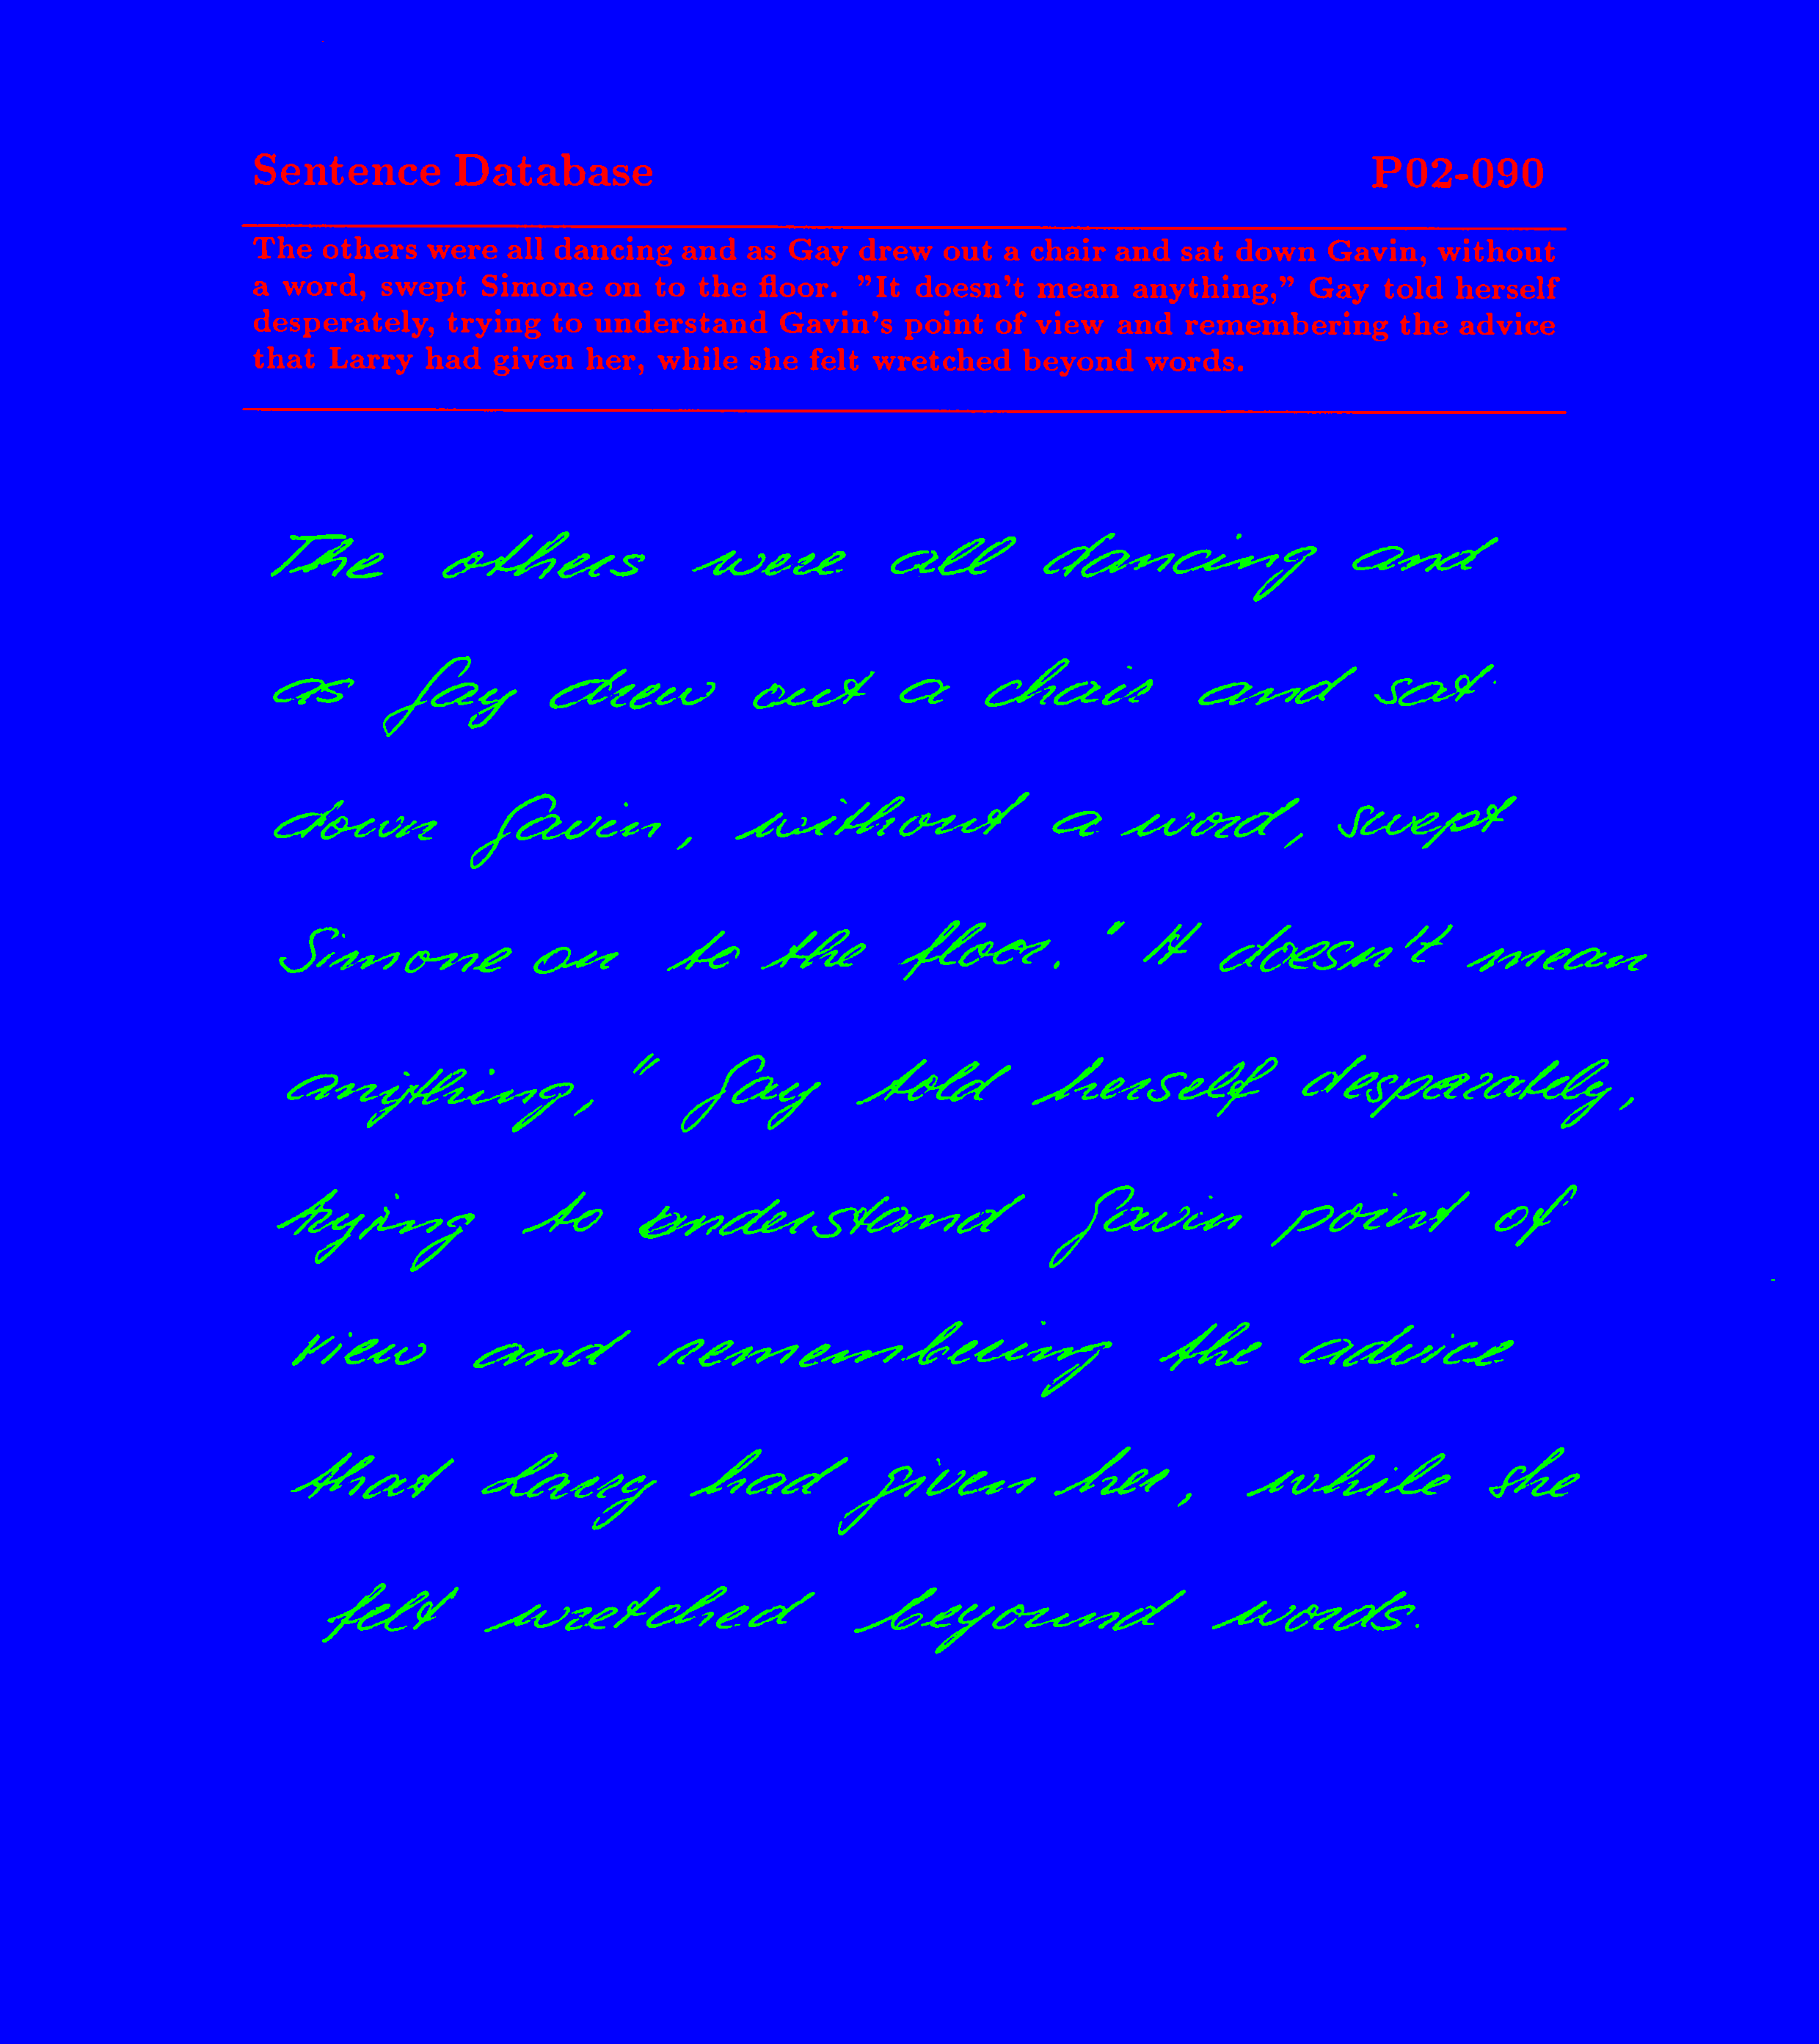 Sentence Database P02-090
The others were all dancing and as Gay drew out a chair and sat down Gavin, without
a word, swept Simone on to the floor. "It doesn't mean anything," Gay told herself
desperately, trying to understand Gavin's point of view and remembering the advice
that Larry had given her, while she felt wretched beyond words.
The others were all dancing and
as Gay drew out a chair and sat
down Gavin, without a word, swept
Simone on to the floor. "It doesn't mean
anything," Gay told herself desperately,
trying to understand Gavin point of
view and remembering the advice
that Larry had given her, while she
felt wretched beyound words.